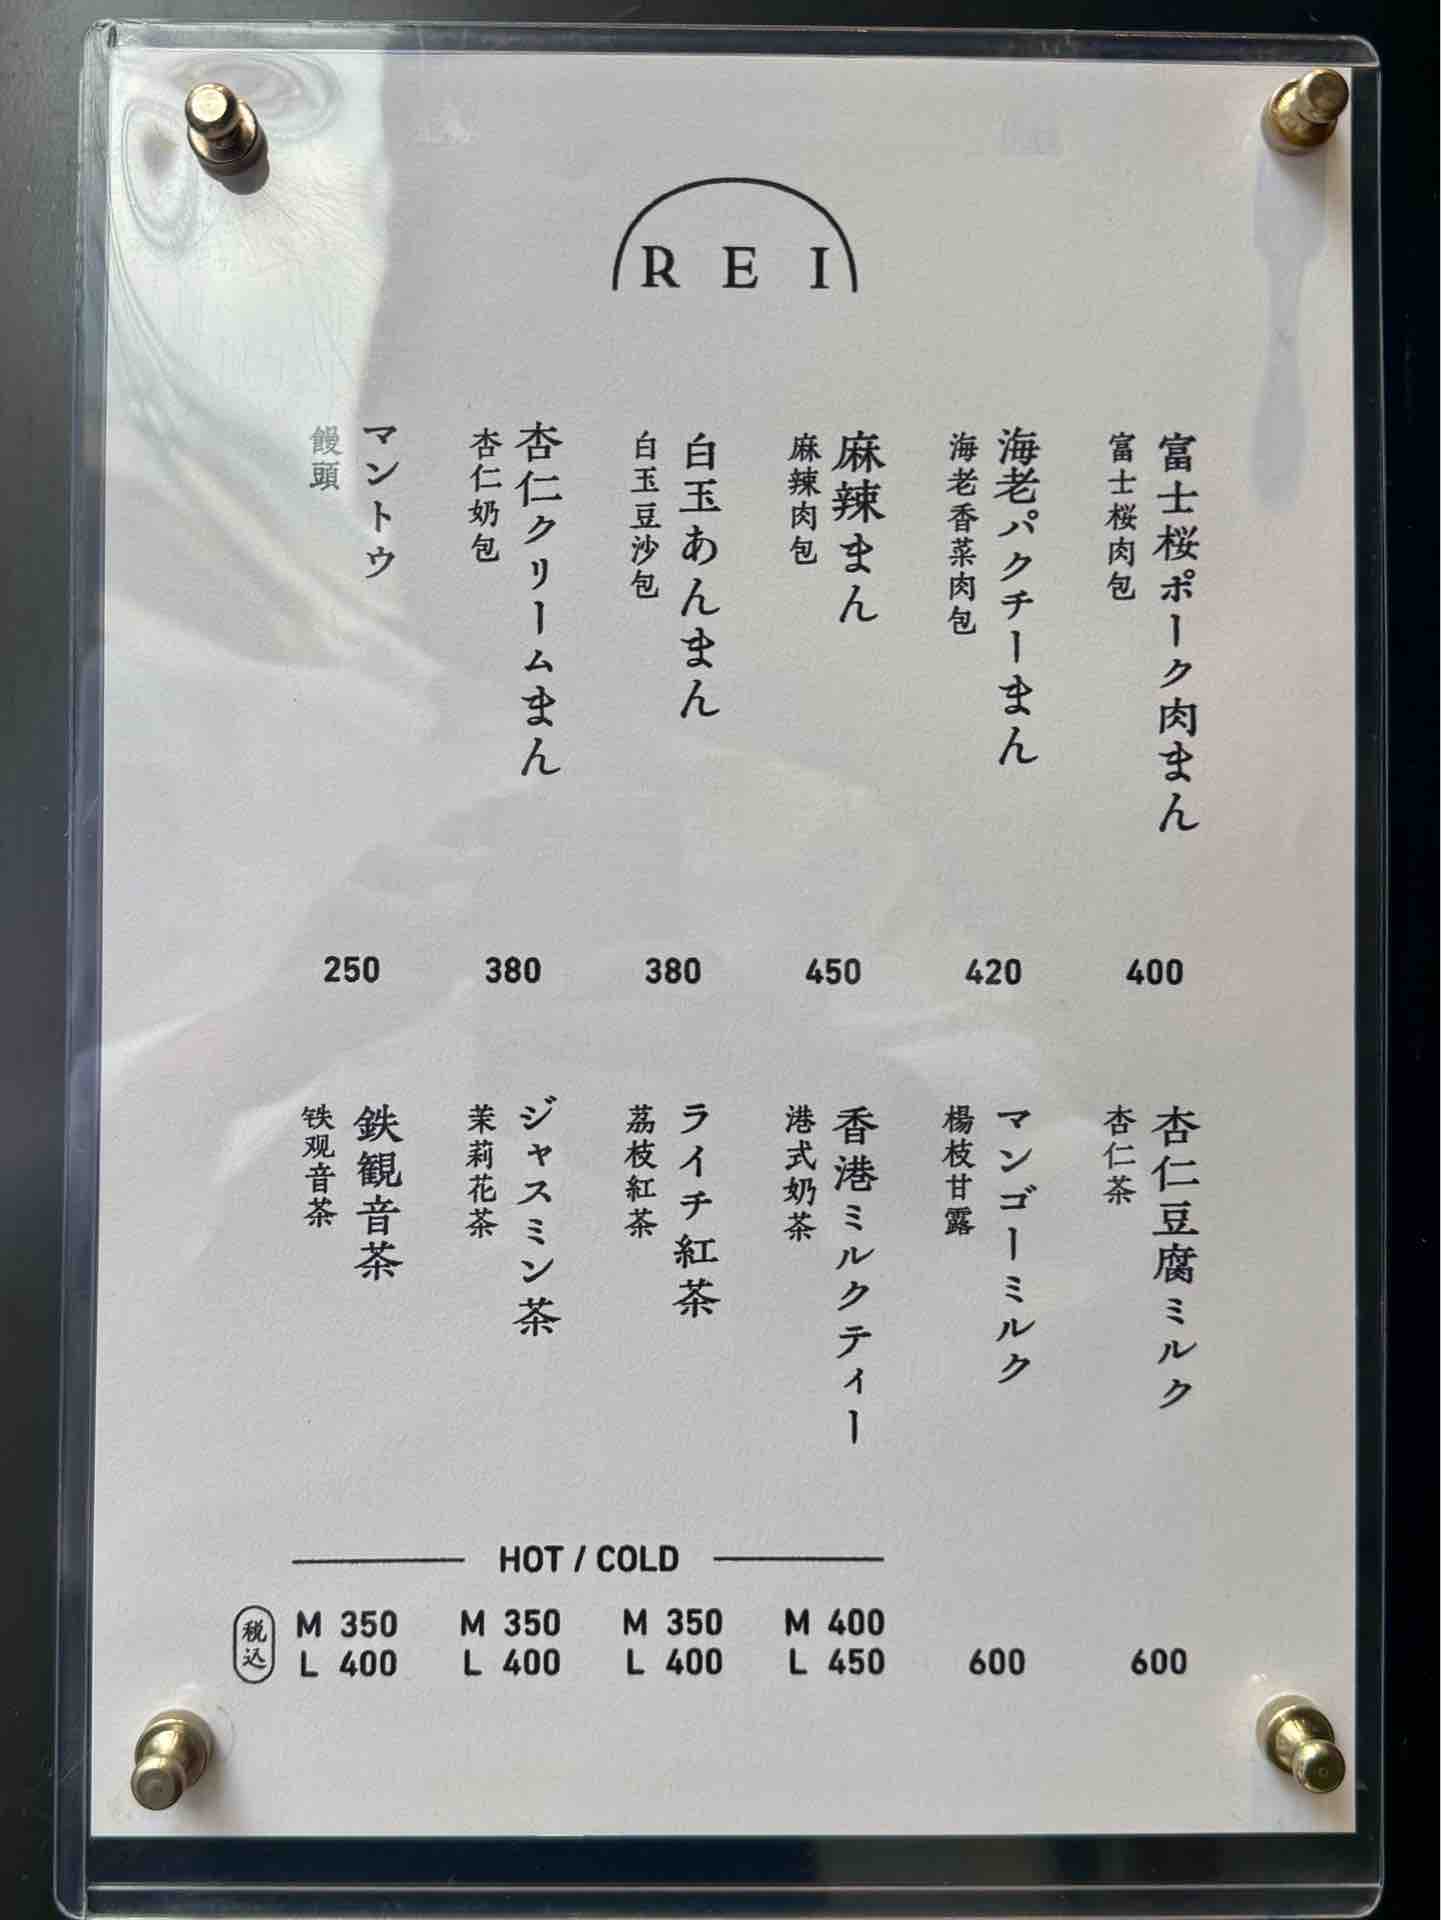 REI
富士桜ポーク肉まん
富士桜肉包
400
海老パクチーまん
海老香菜肉包
420
麻辣まん
麻辣肉包
450
白玉あんまん
白玉豆沙包
380
杏仁クリームまん
杏仁奶包
380
マントウ
饅頭
250
杏仁豆腐ミルク
杏仁茶
600
マンゴーミルク
楊枝甘露
600
香港ミルクティー
港式奶茶
M 400
L 450
ライチ紅茶
荔枝紅茶
M 350
L 400
ジャスミン茶
茉莉花茶
M 350
L 400
鉄観音茶
铁观音茶
M 350
L 400
HOT / COLD
税込